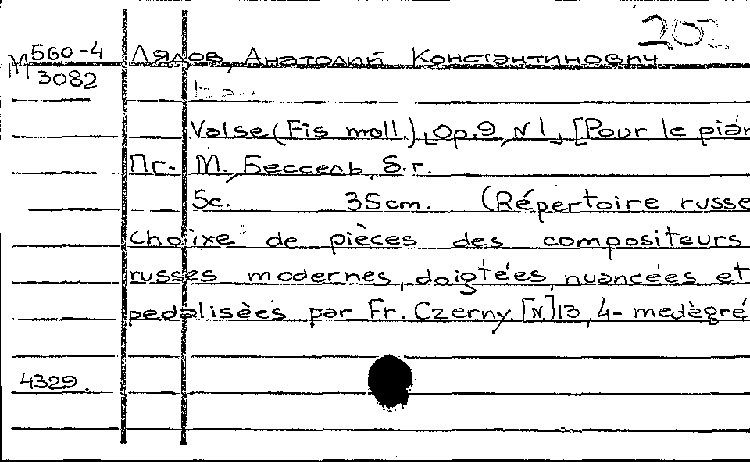 202
М 560-4 Лядов, Анатолий Константинович
3082
Valse (Fis moll.), Op.9, N 1, [Pour le pian
Пг. М., Бессель, S.г.
5c. 35cm. (Répertoire russe
Choixe de pièces des compositeurs
russes modernes, doigtées, nuancées et
pedalisées par Fr. Czerny [N]13, 4-medègré
4329.